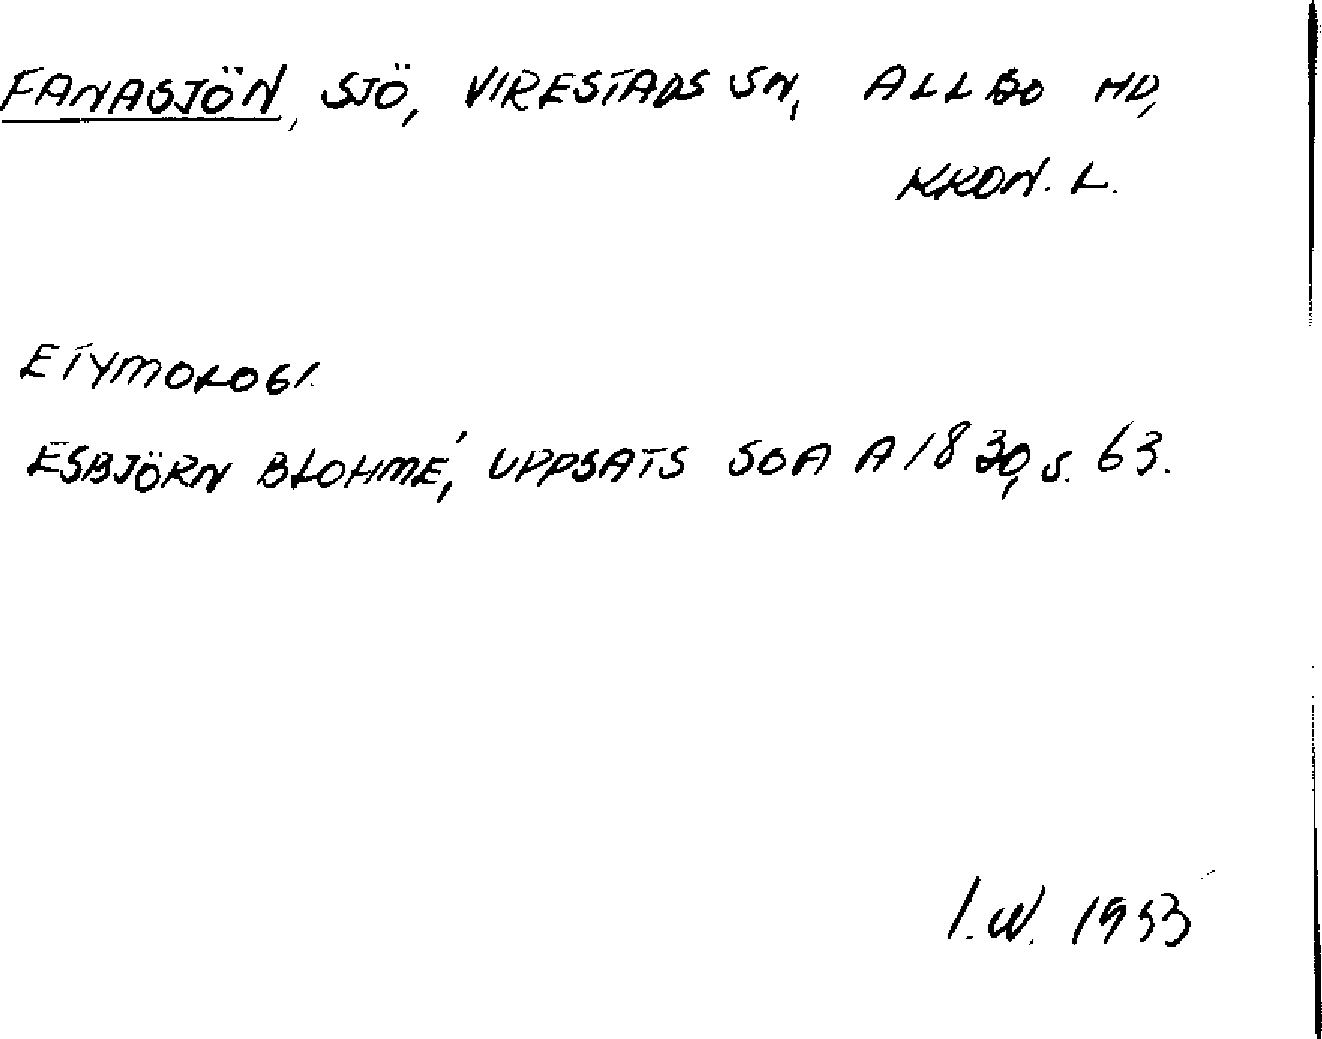 FANASJÖN, SJÖ, VIRESTADS SN, ALLBO HD,
KRON. L.
ETYMOLOGI.
ESBJÖRN BLOHMÉ, UPPSATS SOA A 1830, S. 63.
I.W. 1953